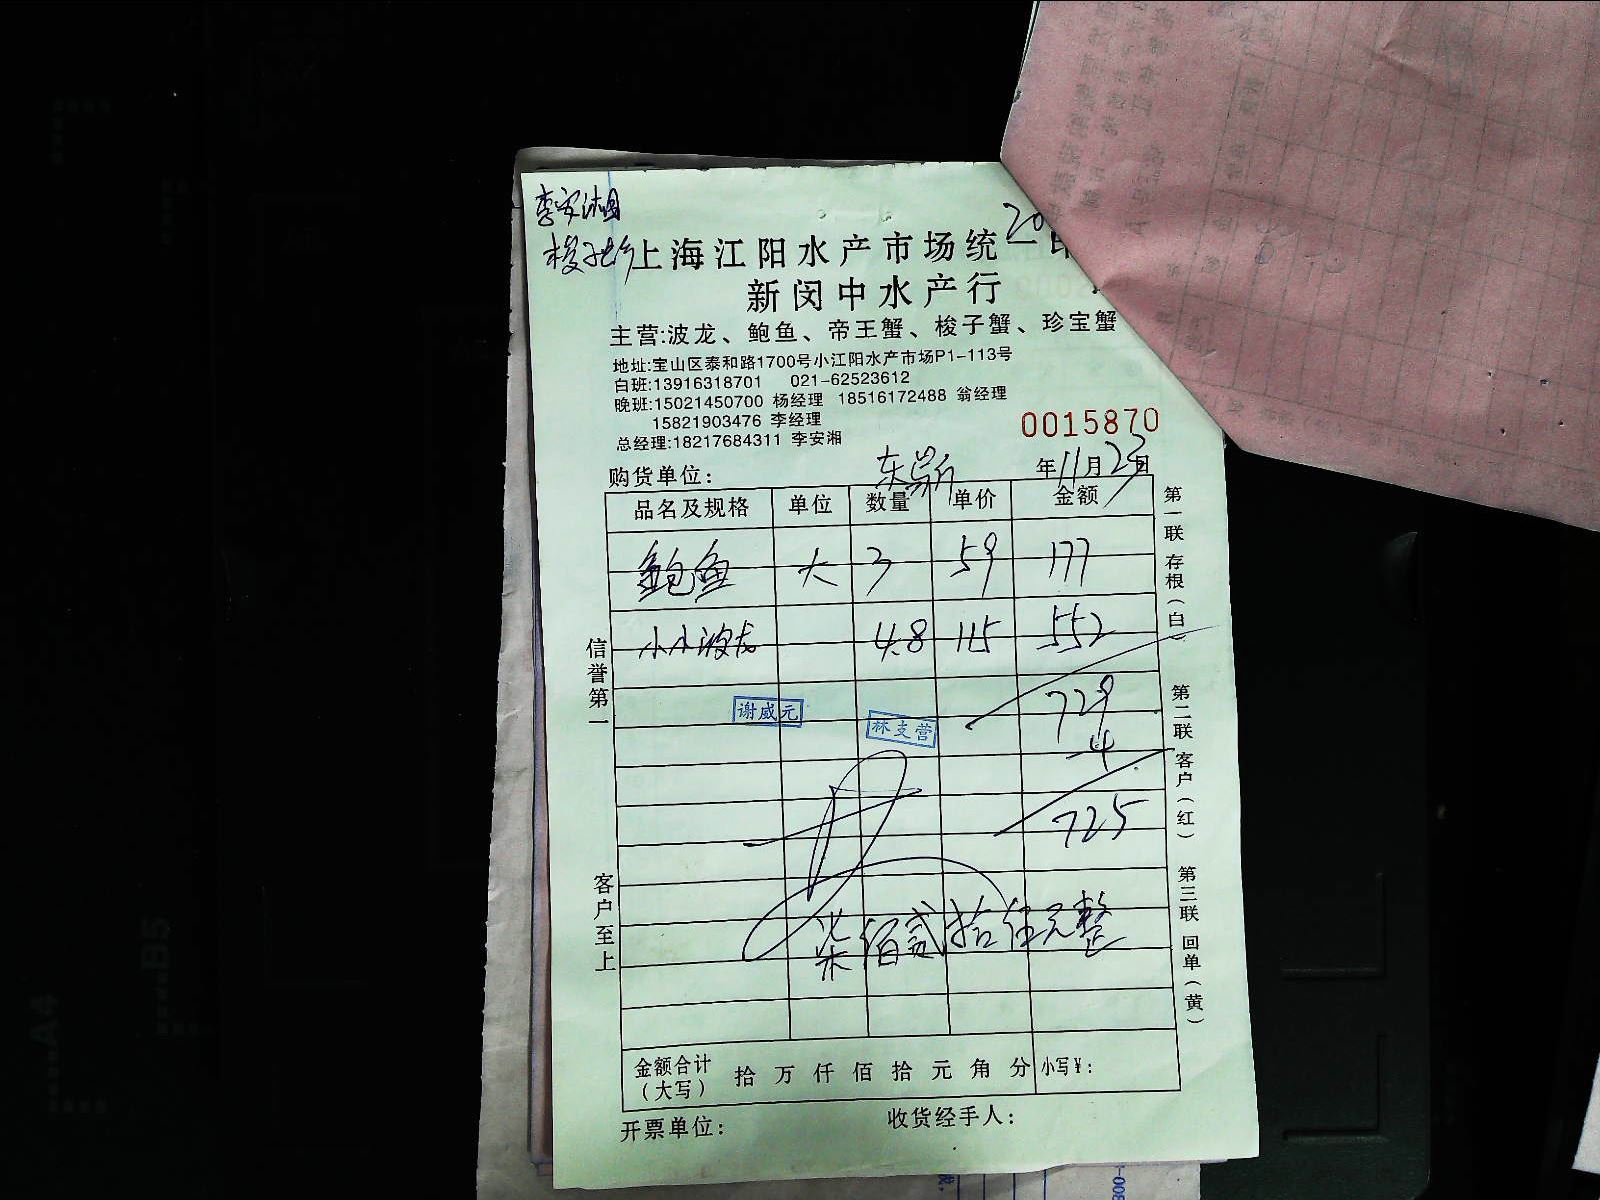 李安湘
梭子蟹
20
上海江阳水产市场统一
新闵中水产行
主营:波龙、鲍鱼、帝王蟹、梭子蟹、珍宝蟹
地址:宝山区泰和路1700号小江阳水产市场P1-113号
白班:13916318701 021-62523612
晚班:15021450700 杨经理 18516172488 翁经理
15821903476 李经理
总经理:18217684311 李安湘
0015870
购货单位:
年11月23日
品名及规格 单位 数量 单价 金额
鲍鱼 大 3 59 177
小小波龙 4.8 115 552
729
谢威元 林支营
-4
725
柒佰贰拾伍元整
金额合计(大写) 拾万仟佰拾元角分 小写¥:
开票单位: 收货经手人:
信誉第一
客户至上
第一联 存根(白)
第二联 客户(红)
第三联 回单(黄)
A4
B5